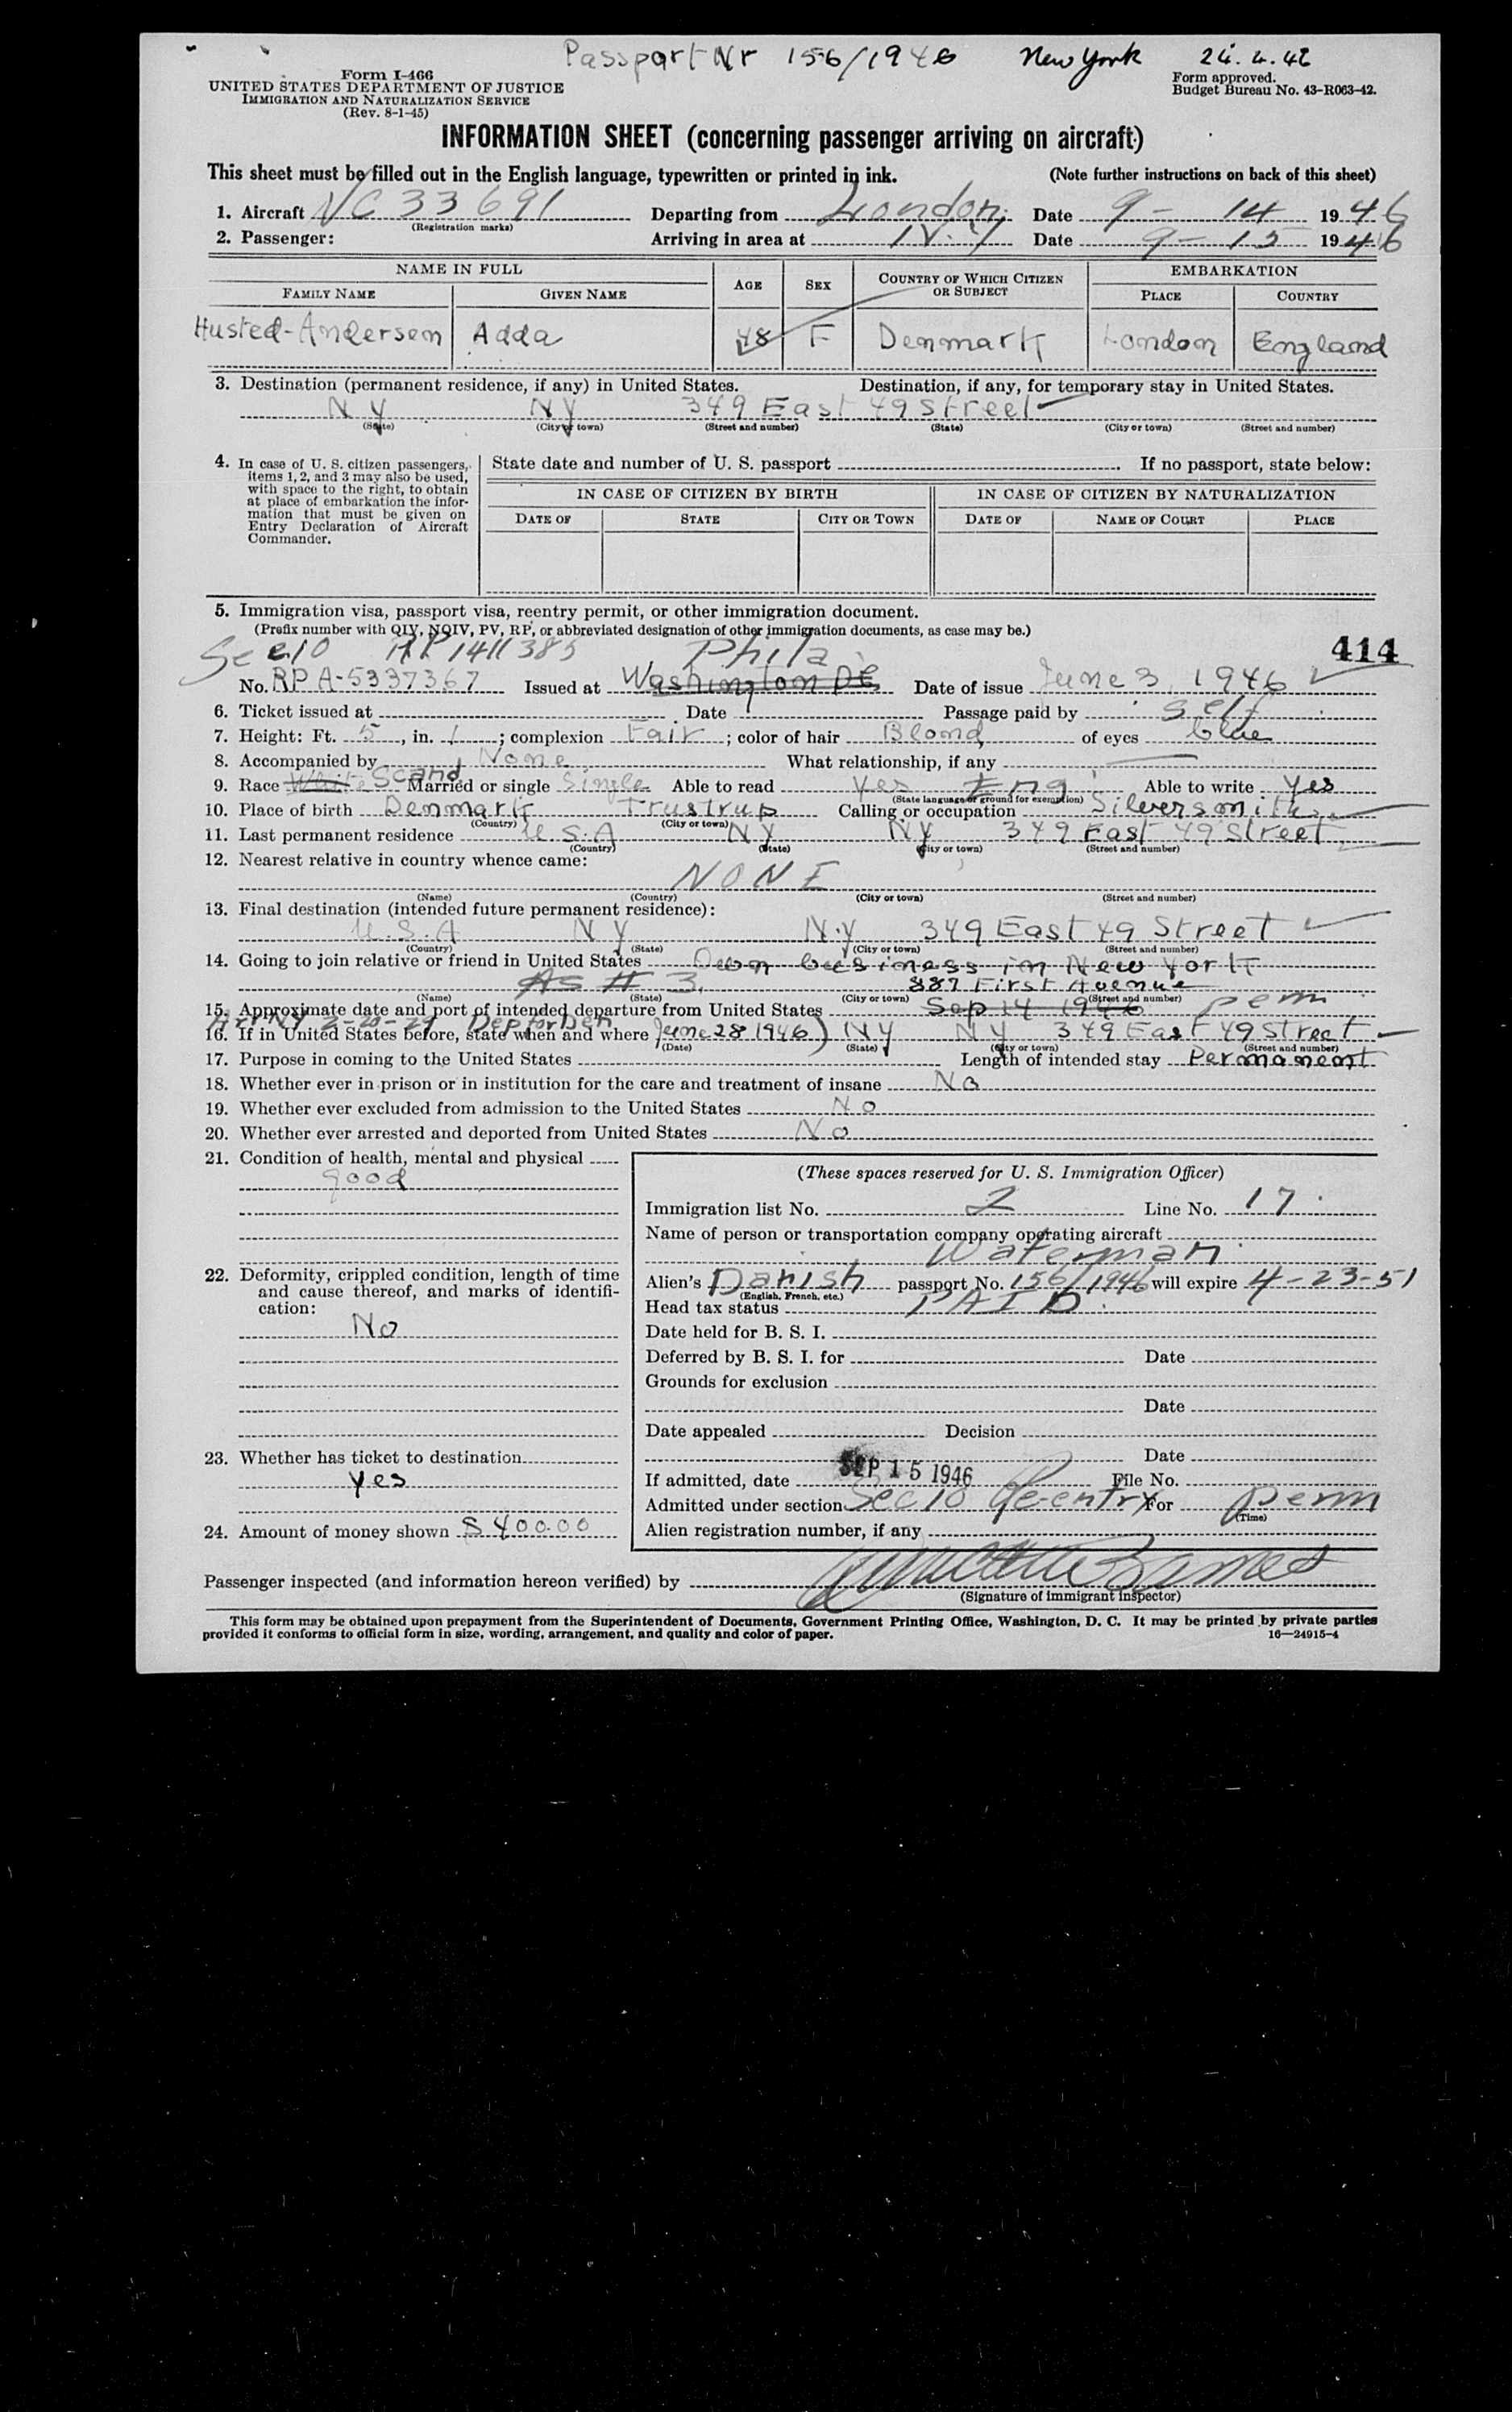 Passport Nr 156/1946 New York 24.4.46
Form I-466
UNITED STATES DEPARTMENT OF JUSTICE
IMMIGRATION AND NATURALIZATION SERVICE
(Rev. 8-1-45)
Form approved.
Budget Bureau No. 43-R063-42.
INFORMATION SHEET (concerning passenger arriving on aircraft)
This sheet must be filled out in the English language, typewritten or printed in ink. (Note further instructions on back of this sheet)
1. Aircraft NC 33691 Departing from London Date 9-14 1946
(Registration marks)
2. Passenger: Arriving in area at N.Y Date 9-15 1946
NAME IN FULL AGE SEX COUNTRY OF WHICH CITIZEN OR SUBJECT EMBARKATION
FAMILY NAME GIVEN NAME PLACE COUNTRY
Husted-Andersen Adda 48 F Denmark London England
3. Destination (permanent residence, if any) in United States. Destination, if any, for temporary stay in United States.
NY NY 349 East 49 Street
(State) (City or town) (Street and number) (State) (City or town) (Street and number)
4. In case of U. S. citizen passengers, items 1, 2, and 3 may also be used, with space to the right, to obtain at place of embarkation the information that must be given on Entry Declaration of Aircraft Commander.
State date and number of U. S. passport If no passport, state below:
IN CASE OF CITIZEN BY BIRTH IN CASE OF CITIZEN BY NATURALIZATION
DATE OF STATE CITY OR TOWN DATE OF NAME OF COURT PLACE
5. Immigration visa, passport visa, reentry permit, or other immigration document.
(Prefix number with QIV, NQIV, PV, RP, or abbreviated designation of other immigration documents, as case may be.)
414
Sec 10 RP 1411385 Phila
No. RP A-5337367 Issued at Washington DC Date of issue June 3, 1946
6. Ticket issued at Date Passage paid by Self
7. Height: Ft. 5, in. 1; complexion Fair; color of hair Blond of eyes blue
8. Accompanied by None What relationship, if any
9. Race White Scand Married or single Single Able to read Yes Eng Able to write Yes
(State language or ground for exemption)
10. Place of birth Denmark Trustrup Calling or occupation Silversmith
(Country) (City or town)
11. Last permanent residence U.S.A NY NY 349 East 49 Street
(Country) (State) (City or town) (Street and number)
12. Nearest relative in country whence came:
NONE
(Name) (Country) (City or town) (Street and number)
13. Final destination (intended future permanent residence):
U.S.A NY N.Y 349 East 49 Street
(Country) (State) (City or town) (Street and number)
14. Going to join relative or friend in United States Own business in New York
As # 3. 887 First Avenue
(Name) (State) (City or town) (Street and number)
15. Approximate date and port of intended departure from United States Sep 14 1946 perm
Arr NY 2-20-29 Dep for Den
16. If in United States before, state when and where June 28 1946) NY NY 349 East 49 Street
(Date) (State) (City or town) (Street and number)
17. Purpose in coming to the United States Length of intended stay Permanent
18. Whether ever in prison or in institution for the care and treatment of insane No
19. Whether ever excluded from admission to the United States No
20. Whether ever arrested and deported from United States No
21. Condition of health, mental and physical
good
22. Deformity, crippled condition, length of time and cause thereof, and marks of identification:
No
23. Whether has ticket to destination
Yes
24. Amount of money shown $ 400.00
(These spaces reserved for U. S. Immigration Officer)
Immigration list No. 2 Line No. 17
Name of person or transportation company operating aircraft
Waterman
Alien's Danish passport No. 156/1946 will expire 4-23-51
(English, French, etc.)
Head tax status PAID
Date held for B. S. I.
Deferred by B. S. I. for Date
Grounds for exclusion
Date
Date appealed Decision
Date
If admitted, date SEP 15 1946 File No.
Admitted under section Sec 10 Re-entry For perm
(Time)
Alien registration number, if any
Passenger inspected (and information hereon verified) by
(Signature of immigrant inspector)
This form may be obtained upon prepayment from the Superintendent of Documents, Government Printing Office, Washington, D. C. It may be printed by private parties
provided it conforms to official form in size, wording, arrangement, and quality and color of paper. 16—24915-4